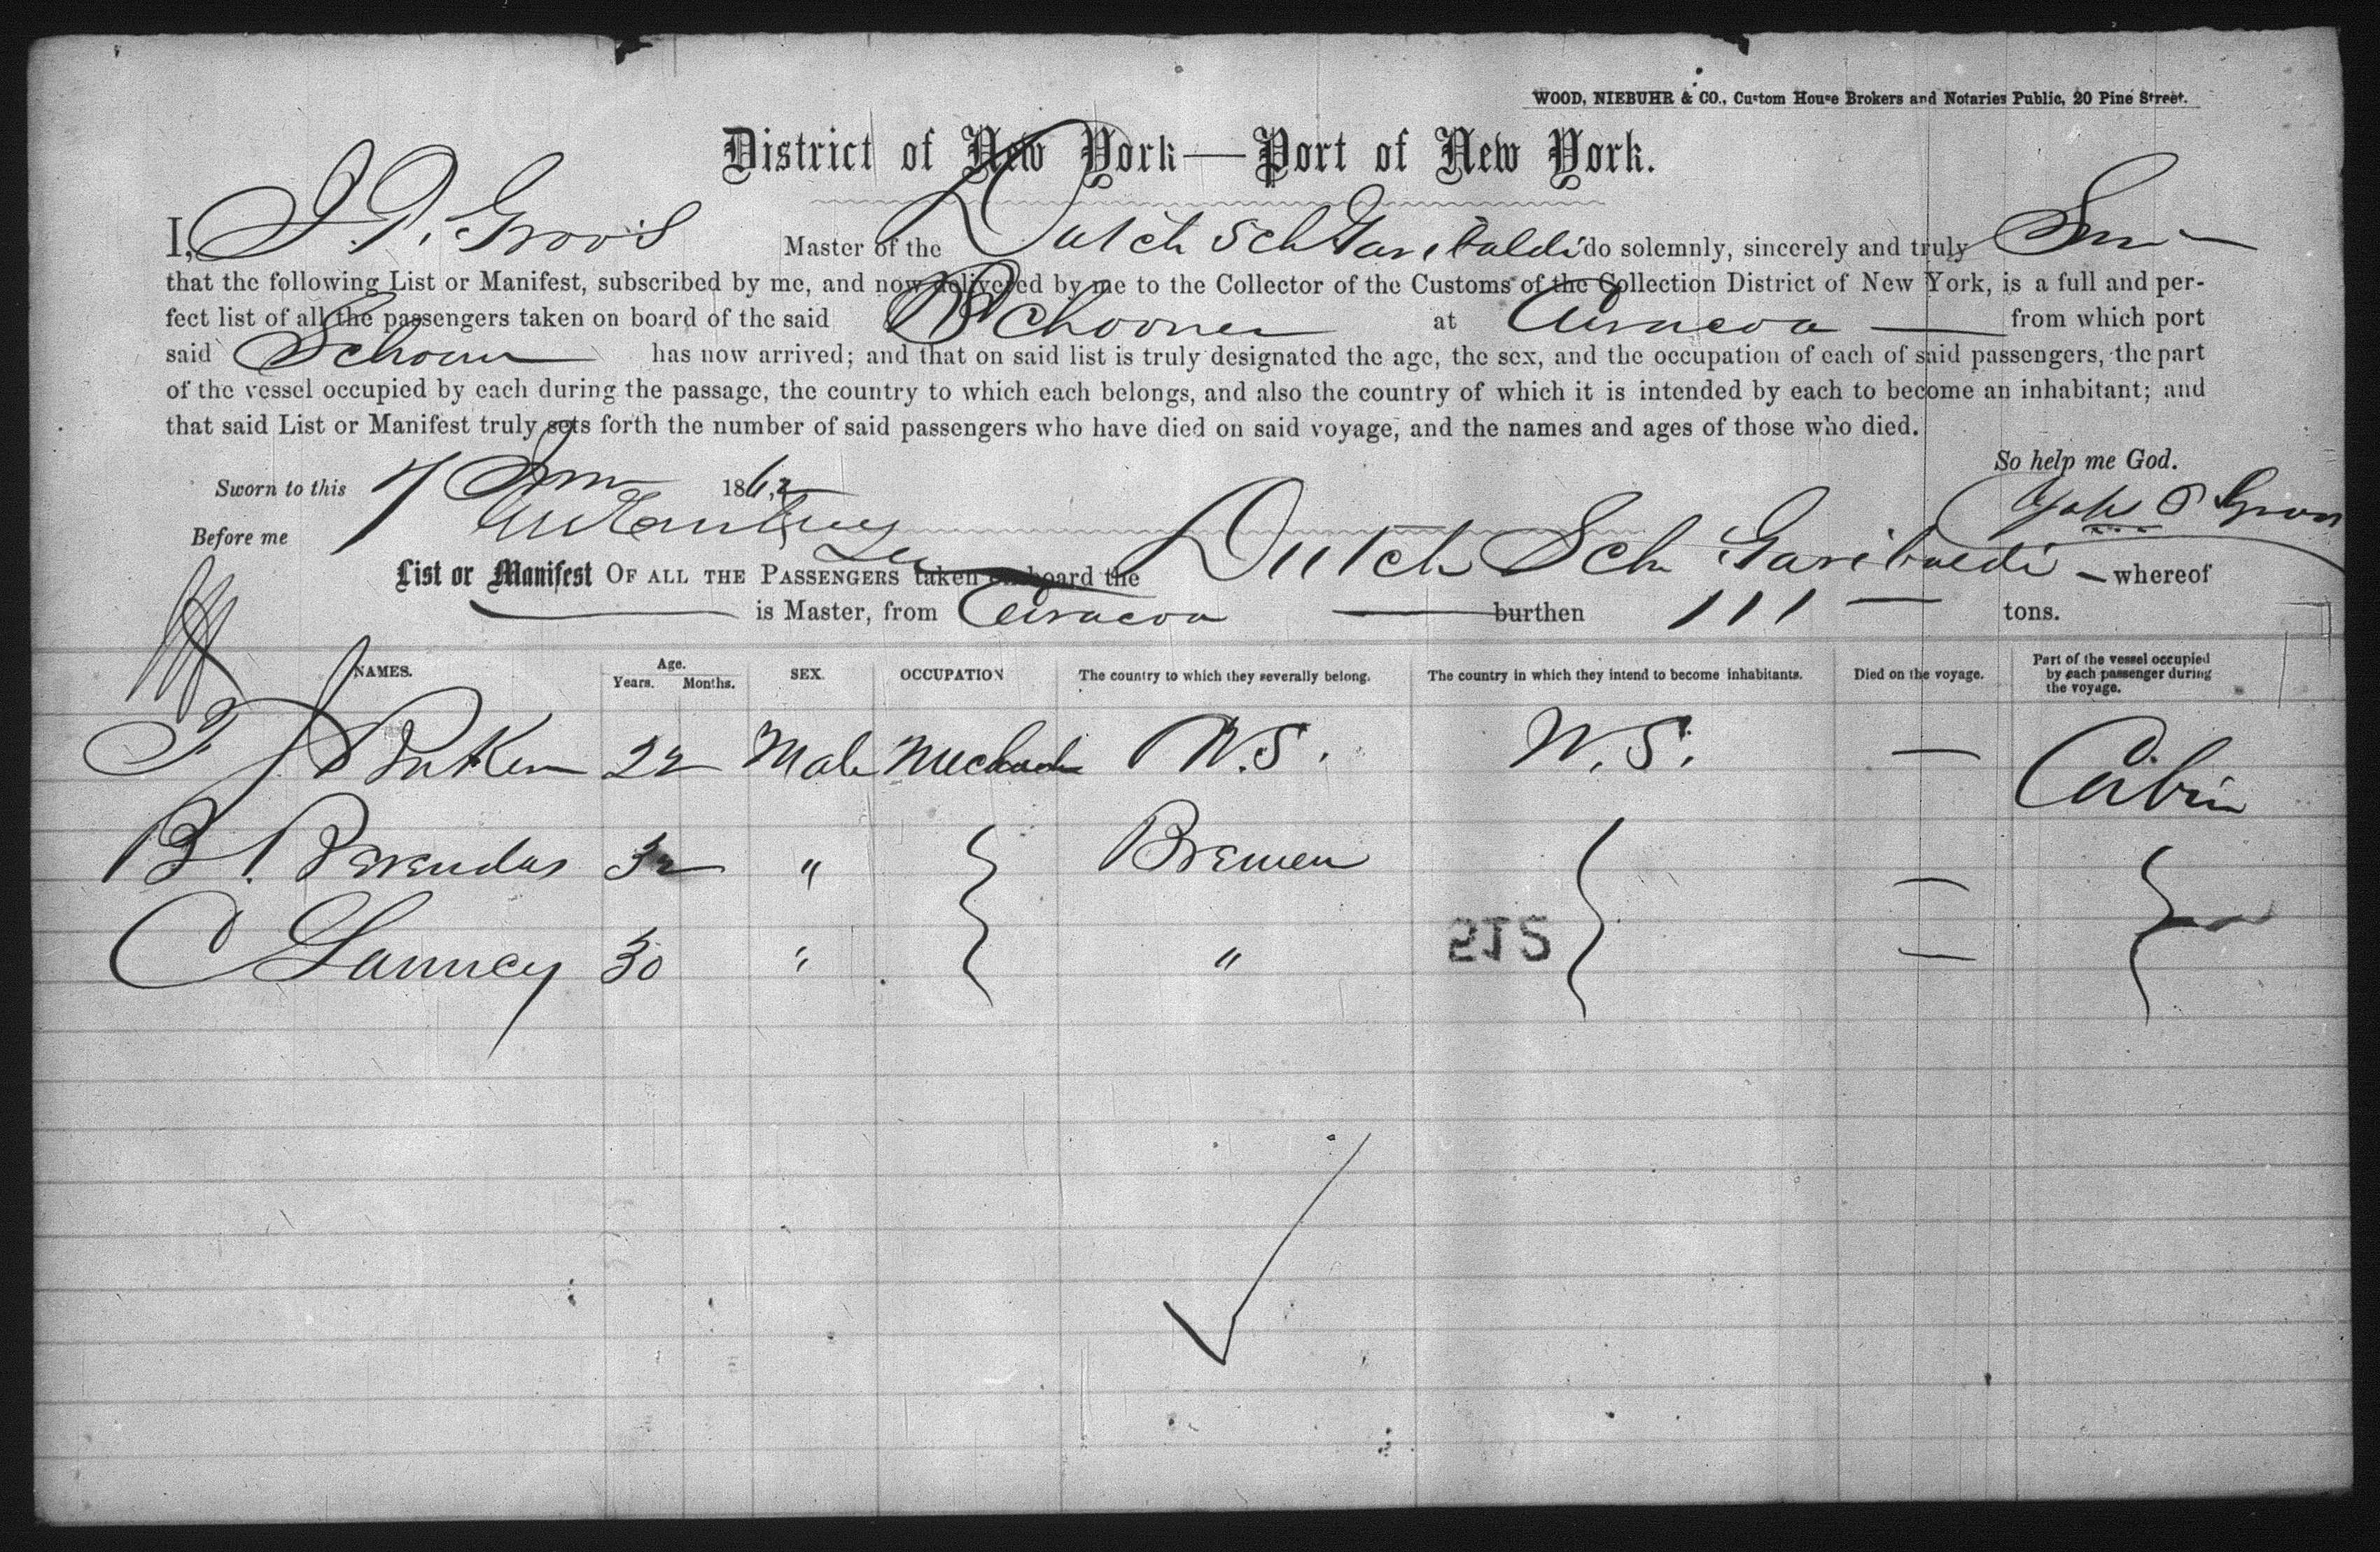 WOOD, NIEBUHR & CO., Custom House Brokers and Notaries Public, 20 Pine Street.
District of New York—Port of New York.
I, J. P. Groos Master of the Dutch Sch Garibaldi do solemnly, sincerely and truly
that the following List or Manifest, subscribed by me, and now delivered by me to the Collector of the Customs of the Collection District of New York, is a full and per-
fect list of all the passengers taken on board of the said Schooner at Curacoa — from which port
said Schooner has now arrived; and that on said list is truly designated the age, the sex, and the occupation of each of said passengers, the part
of the vessel occupied by each during the passage, the country to which each belongs, and also the country of which it is intended by each to become an inhabitant; and
that said List or Manifest truly sets forth the number of said passengers who have died on said voyage, and the names and ages of those who died.
So help me God.
Sworn to this 7 1862
Before me
List or Manifest OF ALL THE PASSENGERS taken on board the Dutch Sch Garibaldi — whereof
is Master, from Curacoa — burthen 111 — tons.
NAMES. Age. Years. Months. SEX. OCCUPATION The country to which they severally belong. The country in which they intend to become inhabitants. Died on the voyage. Part of the vessel occupied by each passenger during the voyage.
22 Male — Cabin
B. 32 " Bremen —
C 30 " " —
215